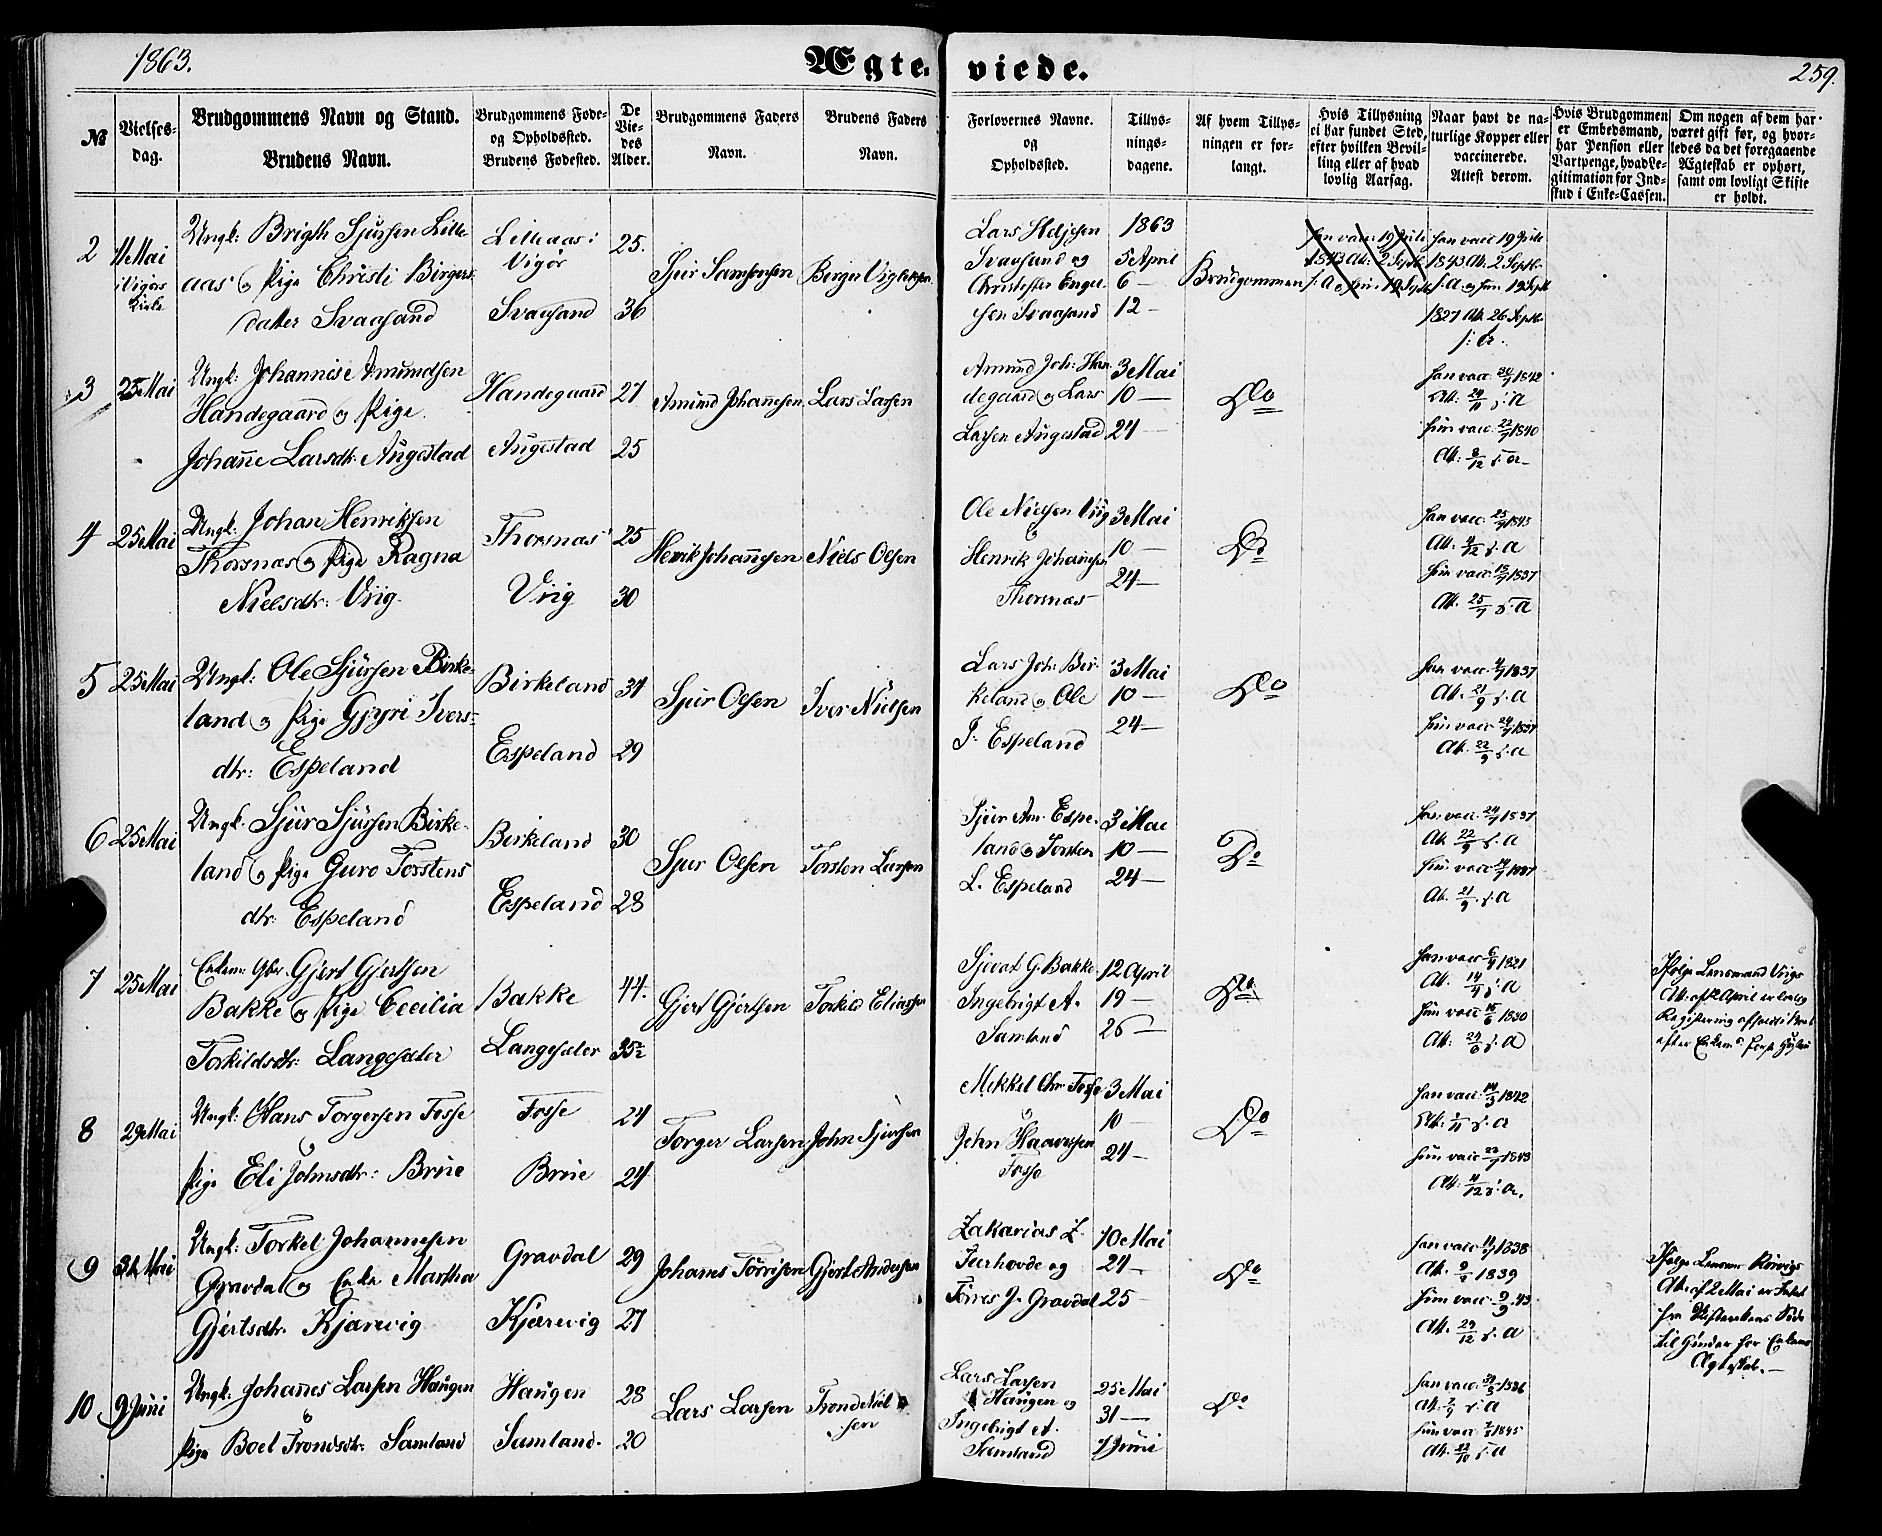 1863.
Ægte-
viede.
259.
№
Vielses-
dag.
Brudgommens Navn og Stand.
Brudens Navn.
Brudgommens Føde-
og Opholdssted.
Brudens Fødested.
De
Vie-
des
Alder.
Brudgommens Faders
Navn.
Brudens Faders
Navn.
Forlovernes Navne.
og
Opholdssted.
Tillys-
nings-
dagene.
Af hvem Tillys-
ningen er for-
langt.
Hvis Tillysning
ei har fundet Sted,
efter hvilken Bevil-
ling eller af hvad
lovlig Aarsag.
Naar havt de na-
turlige Kopper eller
vaccinerede.
Attest derom.
Hvis Brudgommen
er Embedsmand,
har Pension eller
Vartpenge, hvad Le-
gitimation for Ind-
skud i Enke-Cassen.
Om nogen af dem har
været gift før, og hvor-
ledes da det foregaaende
Ægteskab er ophørt,
samt om lovligt Skifte
er holdt.
2
11 Mai
i Vigørs
Kirke
Ungk: Brigth Sjursen Lille-
aas og Pige Christi Birgers-
datter Svaasand
Lilleaas i
Vigør
Svaasand
25.
36
Sjur Samsonsen
Birger Vigleiksen
Lars Helgesen
Svaasand og
Christoffer Enger
sen Svaasand
1863
5 April
6 —
12 —
Brudgommen
han vacc 19 Juli
1843 Att. 2 Septb.
f. A og hun 19 Septb
han vacc 19 Juli
1843 Att. 2 Septb.
f. A og hun 19 Septb
1827 Att. 26 Septb.
f: a.
3
25 Mai
Ungk: Johannis Amundsen
Handegaard og Pige
Johanne Larsdtr: Augestad
Handegaard
Augestad
27
25
Amund Johannesen
Lars Larsen
Amund Joh: Han-
degaard og Lars
Larsen Augestad
3 Mai
10 —
24 —
Do
han vacc: 30/7 1842
Att: 29/11 s: a
hun vacc: 22/7 1840
Att: 8/12 s: a
4
25 Mai
Ungk: Johan Henriksen
Thorsnæs og Pige Ragna
Nielsdtr: Vrig
Thorsnæs
Vrig
25
30
Henrik Johannesen
Niels Olsen
Ole Nielsen Vrig
Henrik Johannesen
Thorsnæs
3 Mai
10 —
24 —
Do
han vacc: 25/7 1843
Att. 4/12 s: a
hun vacc: 15/7 1837
Att. 25/7 s: a
5
25 Mai
Ungk: Ole Sjursen Birke-
land og Pige Gjyri Ivers-
dtr: Espeland
Birkeland
Espeland
31
29
Sjur Olsen
Iver Nielsen
Lars Joh: Bir-
keland og Ole
J. Espeland
3 Mai
10 —
24 —
Do
han vacc: 4/7 1837
Att. 21/9 s: a
hun vacc: 24/7 1837
Att. 22/9 s: a
6
25 Mai
Ungk. Sjur Sjursen Birke-
land og Pige Guro Torstens
dtr: Espeland
Birkeland
Espeland
30
28
Sjur Olsen
Torsten Larsen
Sjur Am. Espe-
land og Torsten
L. Espeland
3 Mai
10 —
24 —
Do
han vacc: 24/7 1837
Att 22/9 s: a
hun vacc: 24/7 1837
Att. 21/9 s: a
7
25 Mai
Enkem: Gbr. Gjert Gjertsen
Bakke og Pige Cecilia
Torkildsdtr: Langesæter
Bakke
Langesæter
44.
35½
Gjert Gjertsen
Torkild Eliassen
Sjovat G. Bakke
Ingebrigt A.
Samland
12 April
19 —
26 —
Do
han vacc 6/7 1821
Att. 14/9 s: a
hun vacc 15/6 1830
Att: 24/6 s: a
Ifølge Lensmand Vrigs
Att: af 12 April er lovlig
Registrering afholdt i Boet
efter
8
29 Mai
Ungk: Hans Torgersen Fosse
Pige Eli Johnsdtr: Brue
Fosse
Brue
24
24
Torger Larsen
John Sjursen
Mikkel Chr Fosse
John Haaversen
Fosse
3 Mai
10 —
24 —
Do
han vacc: 14/3 1842
Att: 2/11 s: a
hun vacc 22/7 1843
Att: 4/12 s: a.
9
31 Mai
Ungk: Torkel Johannesen
Gravdal og Enke Martha
Gjertsdtr. Kjærevig
Gravdal
Kjærevig
29
27
Johannes Tørrisen
Gjert Andersen
Zakarias L.
Tveithovde og
Tørres J. Gravdal
10 Mai
24 —
25 —
Do
han vacc 14/7 1838
Att. 9/9 1839
hun vacc: 9/9 43
Att. 29/12 s: a
Ifølge Lensm. Rørvigs
Att. af 2 Mai er Intet
fra Skifterettens Side
til Hinder for Enkens
Ægteskab. —
10
9 Juni
Ungk: Johannes Larsen Haugen
Pige Boel Trondsdtr: Samland
Haugen
Samland.
28
20
Lars Larsen
Trond Niel-
sen
Lars Larsen
Haugen og
Ingebrigt A.
Samland
25 Mai
31 —
7 Juni
Do
han vacc: 30/5 1836
Att. 2/9 s: a
hun vacc: 7/8 1845
Att. 22/10 s: a